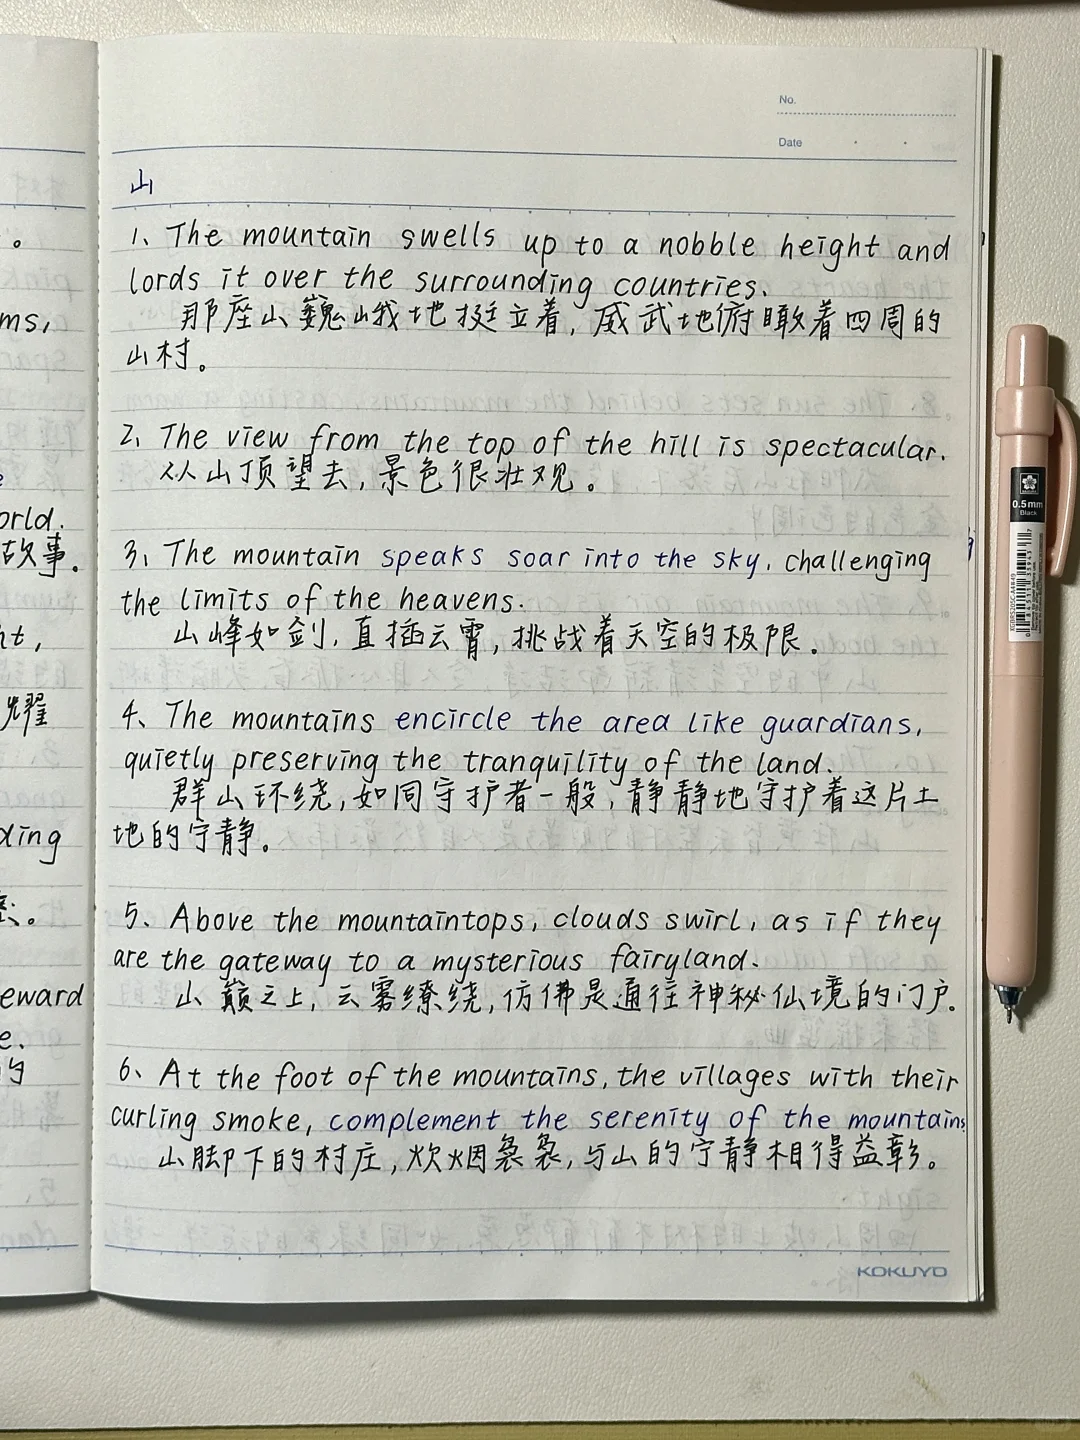 No.
Date
山
1、The mountain swells up to a nobble height and
lords it over the surrounding countries.
那座山巍峨地挺立着，威武地俯瞰着四周的
山村。
2、The view from the top of the hill is spectacular.
从山顶望去，景色很壮观。
3、The mountain speaks soar into the sky, challenging
the limits of the heavens.
山峰如剑，直插云霄，挑战着天空的极限。
4、The mountains encircle the area like guardians,
quietly preserving the tranquility of the land.
群山环绕，如同守护者一般，静静地守护着这片土
地的宁静。
5、Above the mountaintops, clouds swirl, as if they
are the gateway to a mysterious fairyland.
山巅之上，云雾缭绕，仿佛是通往神秘仙境的门户。
6、At the foot of the mountains, the villages with their
curling smoke, complement the serenity of the mountains.
山脚下的村庄，炊烟袅袅，与山的宁静相得益彰。
KOKUYO
。
ms,
orld.
故事。
ht,
耀
ding
eward
e.
的
0.5mm
Black